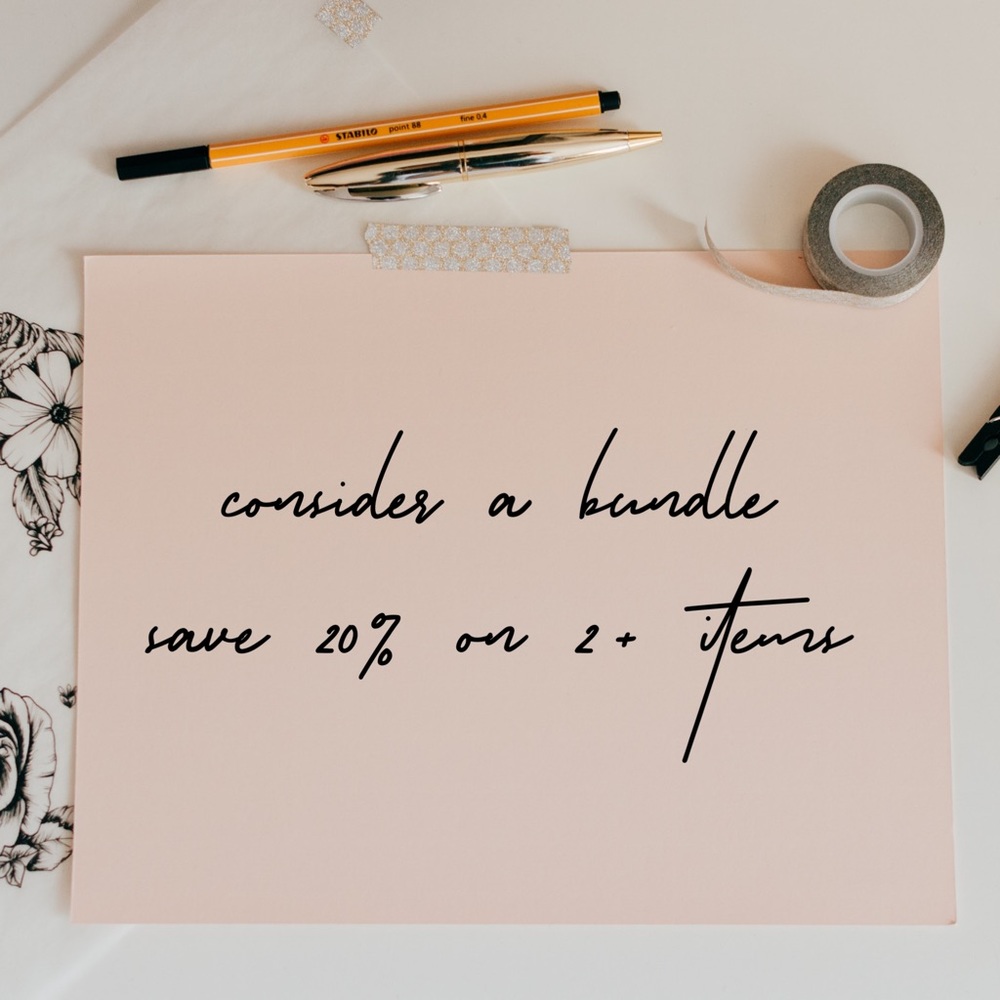 STABILO point 88 fine 0.4
consider a bundle
save 20% on 2+ items